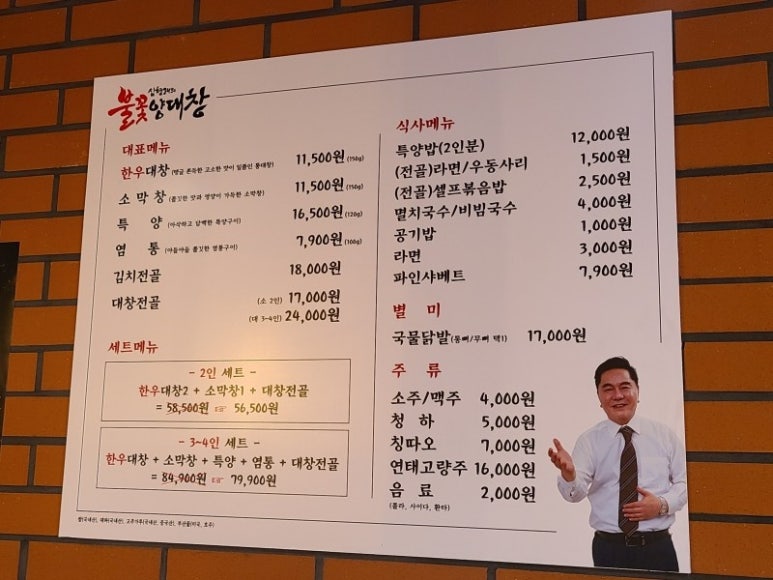 불꽃양대창
대표메뉴
한우대창 11,500원 (150g)
소막창 (쫄깃한 맛과 영양이 가득한 소막창) 11,500원 (150g)
특 양 (아삭하고 담백한 특양구이) 16,500원 (120g)
염 통 (야들야들 쫄깃한 염통구이) 7,900원 (100g)
김치전골 18,000원
대창전골 (소 2인) 17,000원
(대 3~4인) 24,000원
세트메뉴
- 2인 세트 -
한우대창2 + 소막창1 + 대창전골
= 58,500원 ☞ 56,500원
- 3~4인 세트 -
한우대창 + 소막창 + 특양 + 염통 + 대창전골
= 84,900원 ☞ 79,900원
식사메뉴
특양밥(2인분) 12,000원
(전골)라면/우동사리 1,500원
(전골)셀프볶음밥 2,500원
멸치국수/비빔국수 4,000원
공기밥 1,000원
라면 3,000원
파인샤베트 7,900원
별 미
국물닭발(통뼈/무뼈 택1) 17,000원
주 류
소주/맥주 4,000원
청 하 5,000원
칭따오 7,000원
연태고량주 16,000원
음 료 2,000원
(콜라, 사이다, 환타)